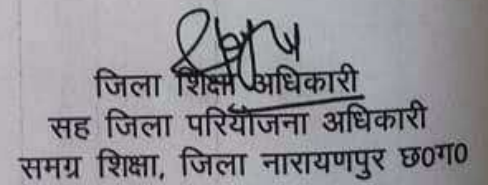 जिला शिक्षा अधिकारी
सह जिला परियोजना अधिकारी
समग्र शिक्षा, जिला नारायणपुर छ0ग0